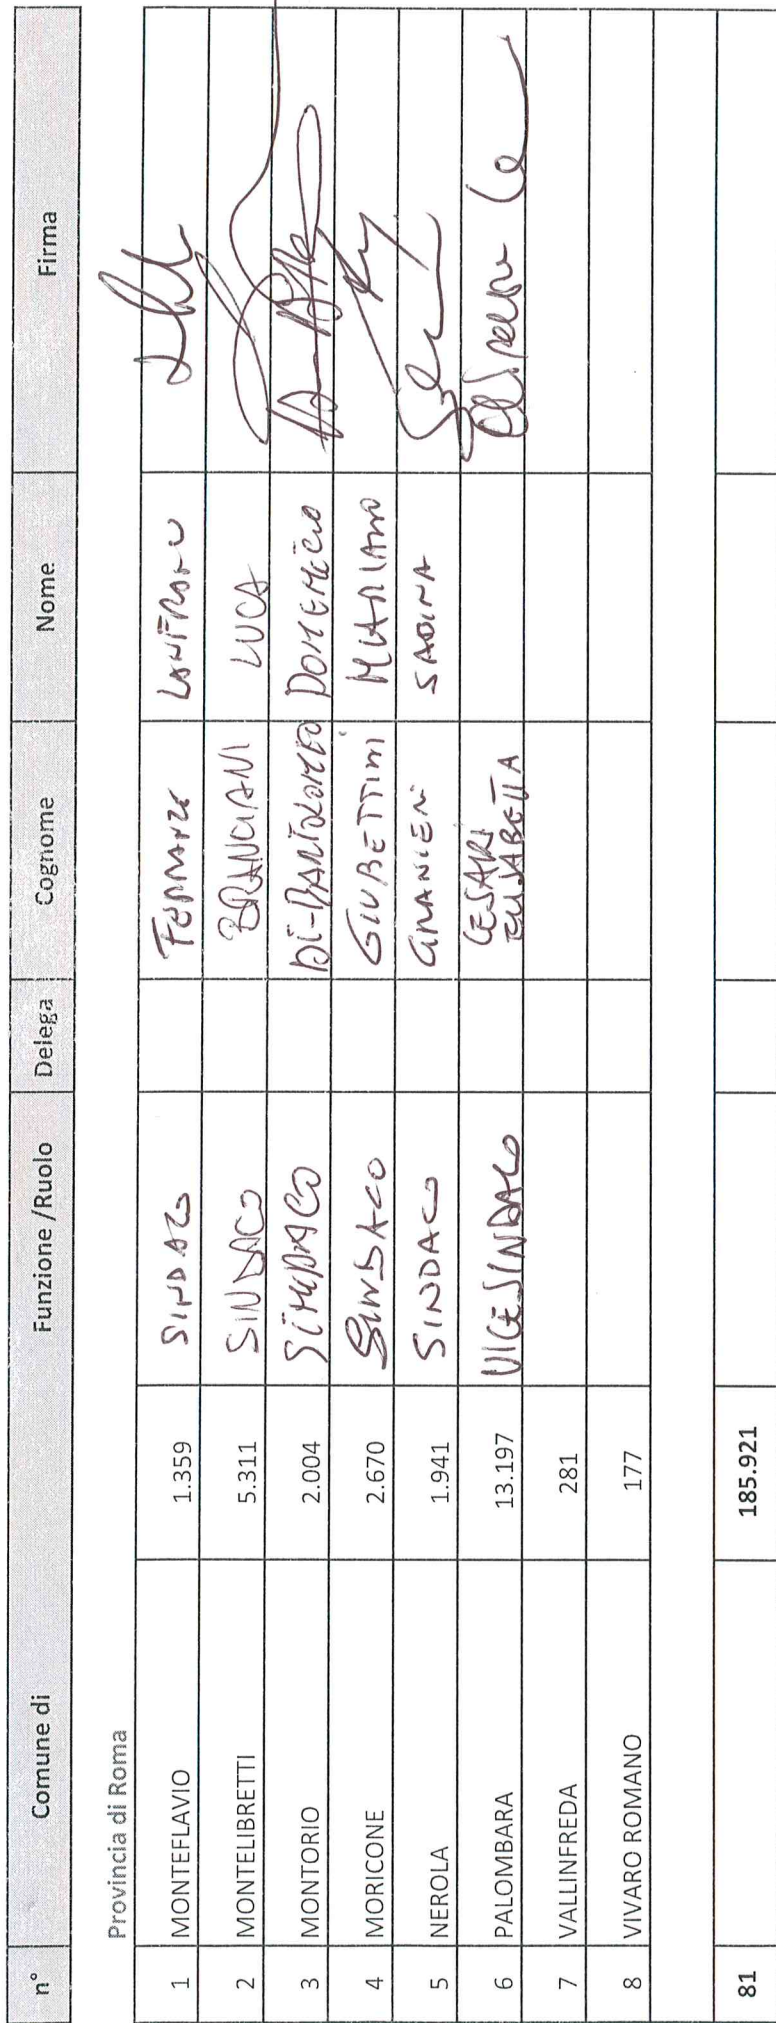 n° Comune di Funzione /Ruolo Delega Cognome Nome Firma
Provincia di Roma
1 MONTEFLAVIO 1.359 SINDACO
2 MONTELIBRETTI 5.311 SINDACO BRANCIANI LUCA
3 MONTORIO 2.004 SINDACO DI-BARTOLOMEO DOMENICO
4 MORICONE 2.670 SINDACO GIUBETTINI MARIANO
5 NEROLA 1.941 SINDACO GRANIERI SABINA
6 PALOMBARA 13.197 VICESINDACO CESARI
ELISABETTA
7 VALLINFREDA 281
8 VIVARO ROMANO 177
81 185.921